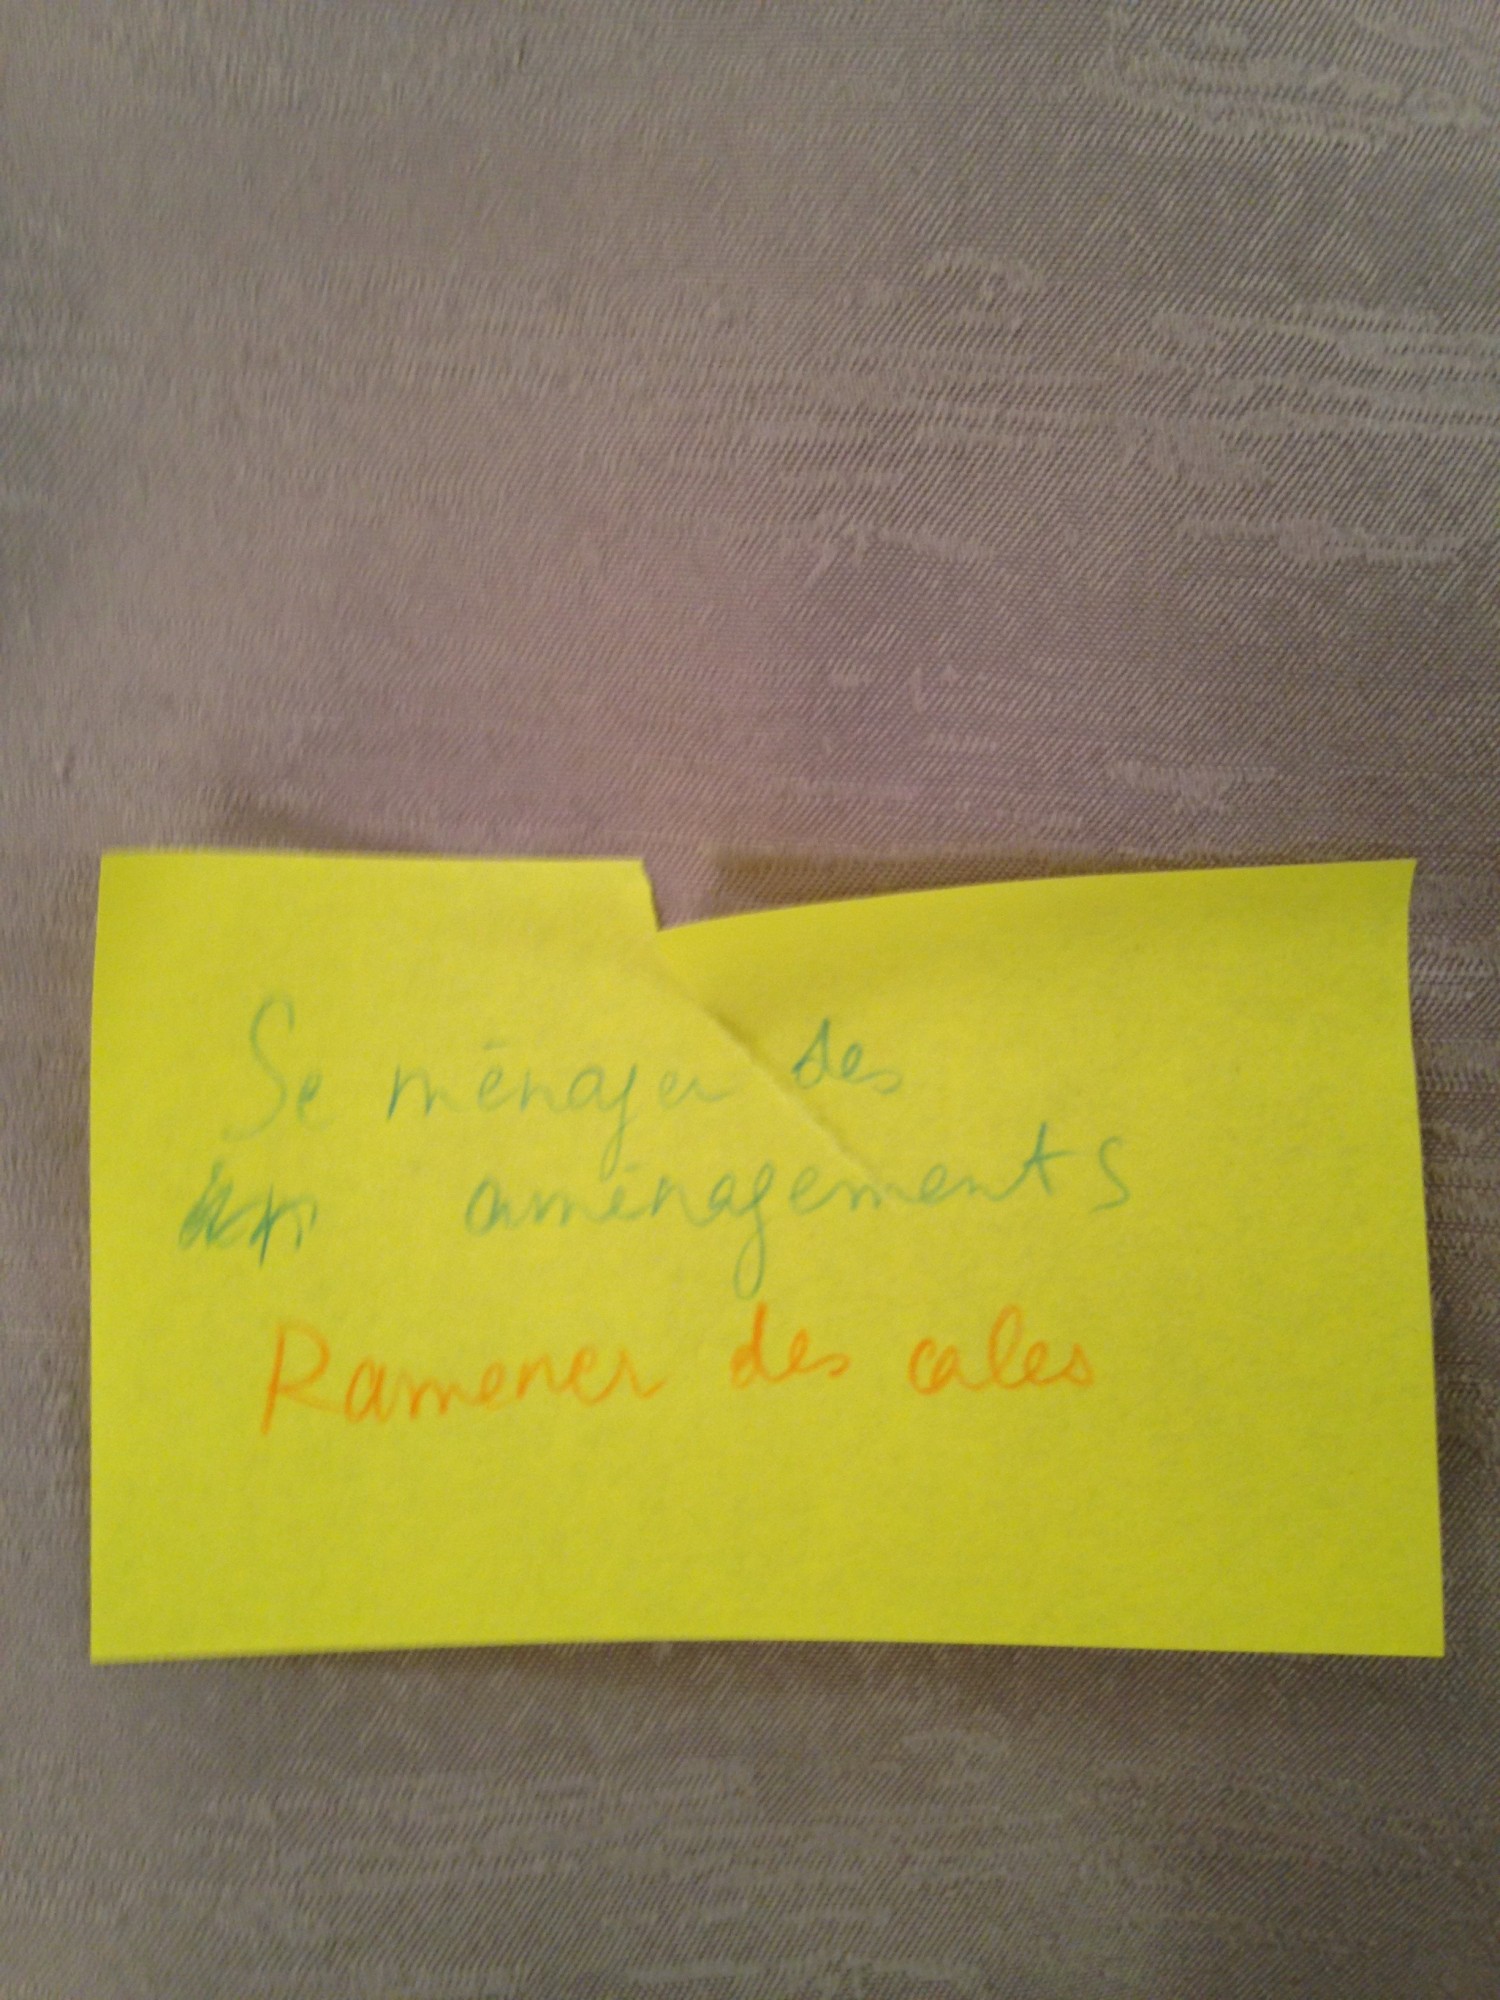 Se ménager des
aménagements
Ramener des cales